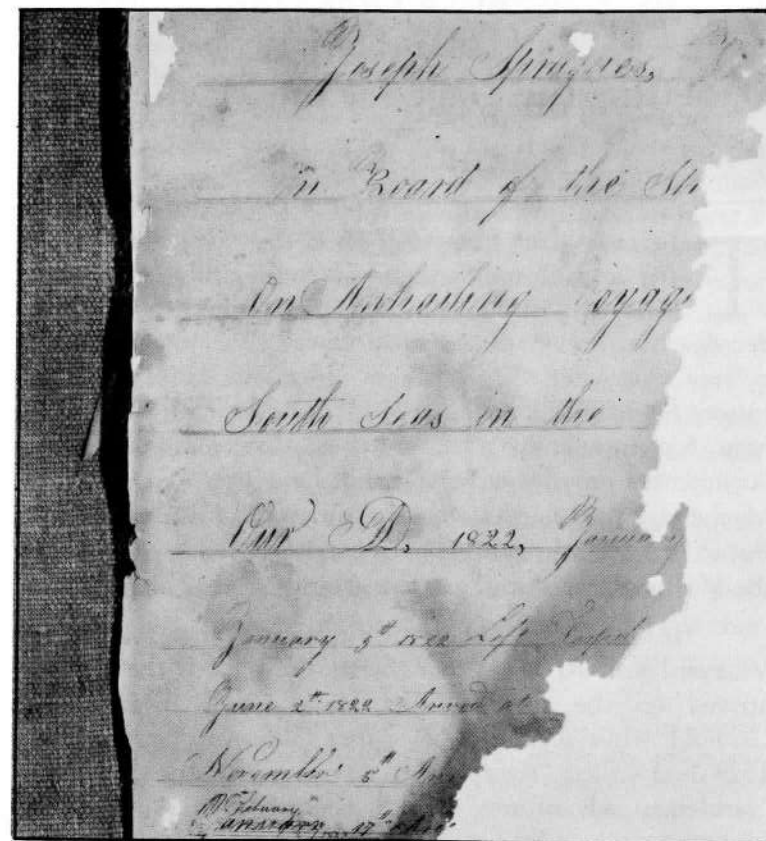 Joseph Spragues,
n Board of the Sh
On Awhaeling oyag
South Seas in the
Our D, 1822, January
January 5th 1822 Left
June 2th 1822 Arived at
November 5th
February
17th